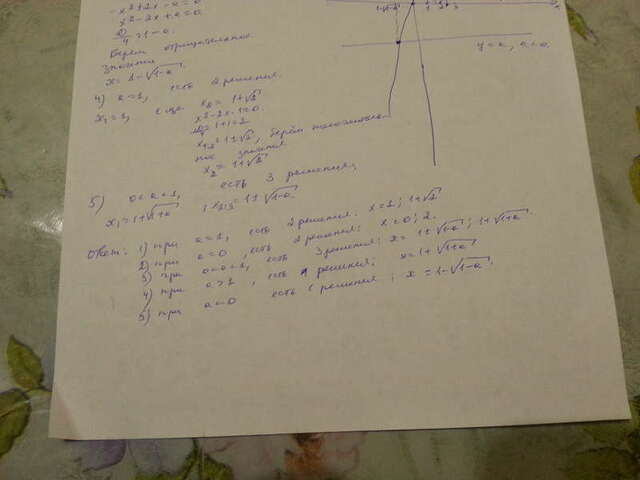 -x²+2x-a=0
x²-2x+a=0.
D/4=1-a.
Берём отрицательное
значение
x=1-√(1-a).
4) a=1, есть 2 решения.
x₁=1, ещё x₂=1+√2
x²-2x-1=0.
D/4=1+1=2
x₁,₂=1±√2, берём положитель-
ное значение
x₂=1+√2
5) 0<a<1, есть 3 решения;
x₁=1+√(1+a) ; x₂,₃=1±√(1-a).
Ответ: 1) при a=1, есть 2 решения: x=1; 1+√2
2) при a=0, есть 2 решения: x=0; 2.
3) при 0<a<1, есть 3 решения: x=1±√(1-a); 1+√(1+a).
4) при a>1, есть 1 решения; x=1+√(1+a)
5) при a<0 есть 1 решения; x=1-√(1-a).
1-√(1-a)
1 2 3
y=a, a<0.